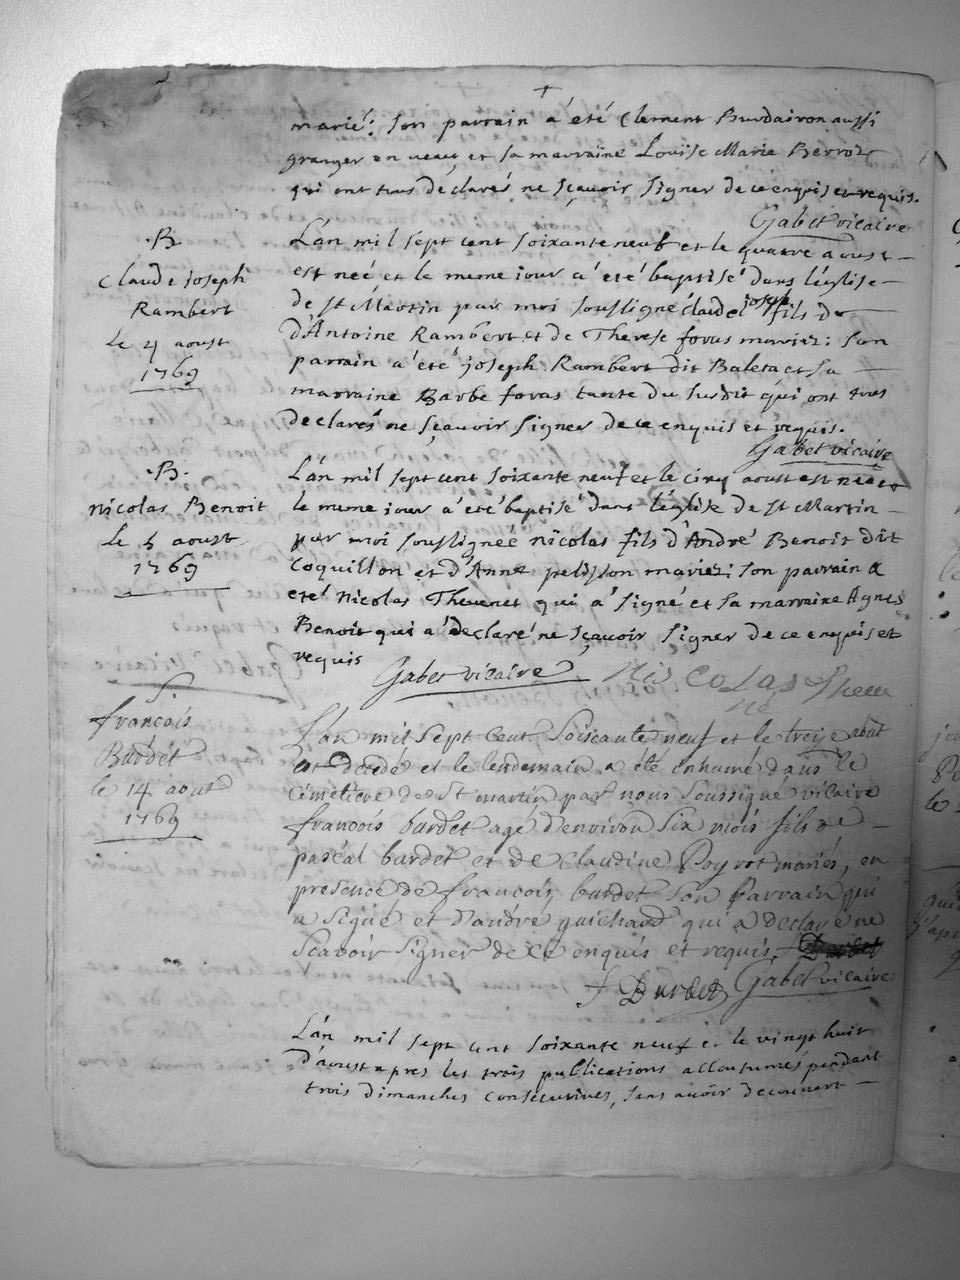 marié: son parrain a été Clement Burdairon aussi
granger en veau, et sa marraine Louise Marie
qui ont tous declarés ne sçavoir signer de ce enquis et requis.
Gabet vicaire
B
Claude joseph
Rambert
le 4 aoust
1769
L'an mil sept cent soixante neuf et le quatre aoust
est neé et le meme jour a été baptisé dans l'église
de st Martin par moi soussigné claude joseph fils de
d'Antoine Rambert et de Therese foras mariez: son
parrain a été joseph Rambert dit Baleta et sa
marraine Barbe foras tante du susdit qui ont tous
declarés ne sçavoir signer de ce enquis et requis.
Gabet vicaire
B.
Nicolas Benoit
le 5 aoust
1769
L'an mil sept cent soixante neuf et le cinq aoust est neé et
le meme jour a été baptisé dans l'église de st Martin
par moi soussigneé nicolas fils d'André Benoit dit
Coquillon et d'Anne pelisson mariez: son parrain a
eté Nicolas Thevenet qui a signé et sa marraine Agnes
Benoit qui a declaré ne sçavoir signer de ce enquis et
requis
Gabet vicaire Nicolas Theve
ne
S
françois
Burdet
le 14 aout
1769
L'an mil sept cent soiscante neuf et le treize aout
est decedé et le lendemain a été enhumé dans le
cimetiere de St martin par nous soussigné vicaire
francois burdet agé d'environ six mois fils de
pascal burdet et de claudine Poyrot mariés, en
presence de francois burdet son parrain qui
a signé et d'andre guichard qui a declaré ne
scavoir signer de ce enquis et requis
f Burdet Gabet vicaire
L'an mil sept cent soixante neuf et le vingt huit
d'aoust apres les trois publications accoutumés pendant
trois dimanches consecutives, sans avoir decouvert